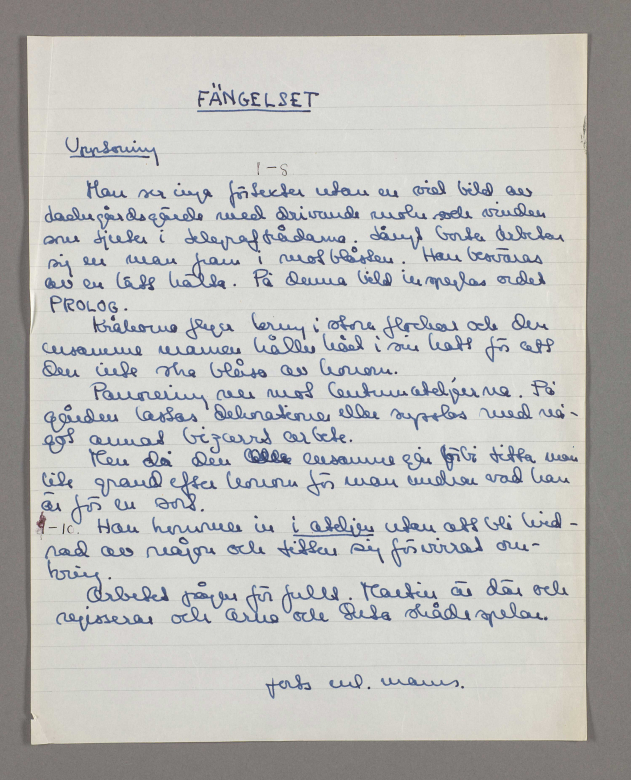 FÄNGELSET
Upptoning
1-8
Man ser inga förtexter utan en vid bild av
stadsgårdsgärde med drivande moln och vinden
som tjuter i telegraftrådarna. Långt borta arbetar
sig en man fram i motblåsten. Han besväras
av en lätt hälta. På denna bild inspeglas ordet
PROLOG.
Kråkorna flyger kring i stora flockar och den
ensamme mannen håller hårt i sin hatt för att
den inte ska blåsa av honom.
Panorering ner mot Centrumateljéerna. På
gården lastas dekorationer eller sysslas med nå-
got annat bizarrt arbete.
Men då den ensamme går förbi tittar man
lite grand efter honom för man undrar vad han
är för en sort.
9-10. Han kommer in i ateljén utan att bli hind-
rad av någon och tittar sig förvirrat om-
kring.
Arbetet pågår för fullt. Martin är där och
regisserar och Arne och skådespelar.
forts enl. manus.